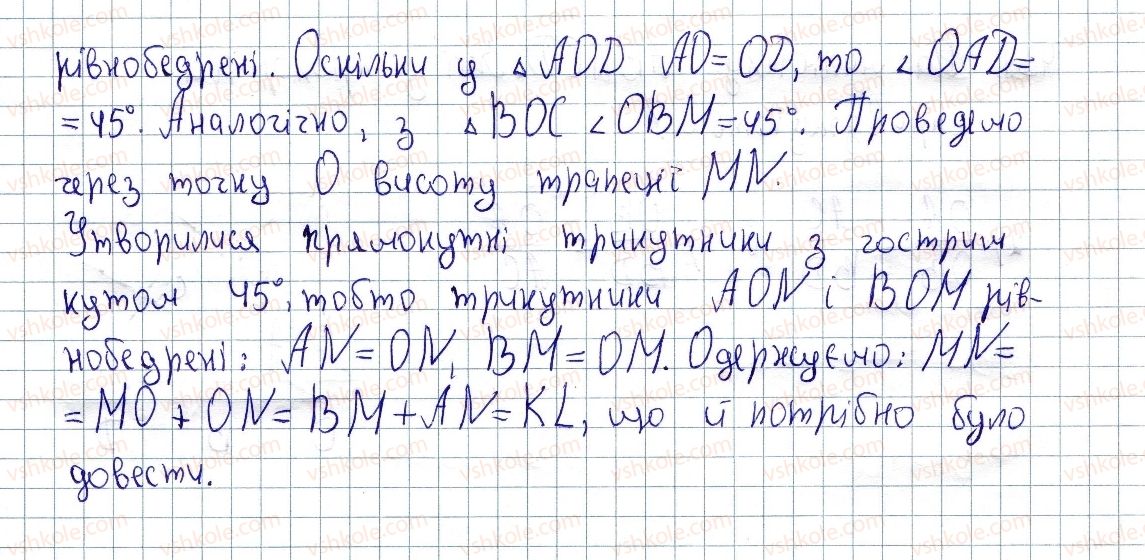 рівнобедрені. Оскільки у △ AOD AO = OD, то ∠ OAD =
= 45°. Аналогічно, з △ BOC ∠ OBM = 45°. Проведемо
через точку O висоту трапеції MN.
Утворилися прямокутні трикутники з гострим
кутом 45°, тобто трикутники AON і BOM рів-
нобедрені: AN = ON, BM = OM. Одержуємо: MN =
= MO + ON = BM + AN = KL, що й потрібно було
довести.